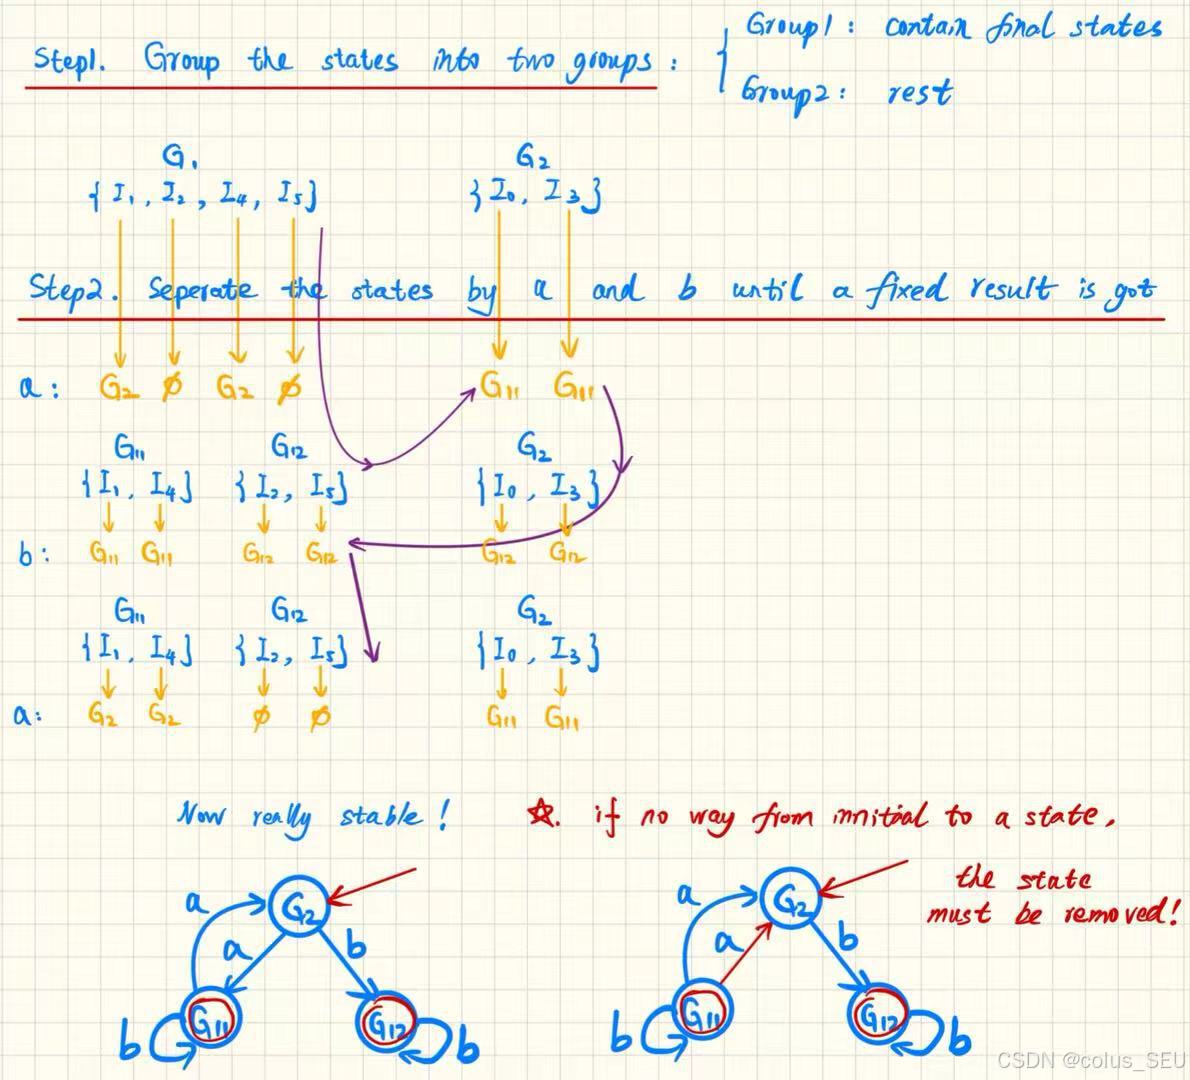 Step1. Group the states into two groups :
Group1 : contain final states
Group2 : rest
G₁ G₂
{ I₁ , I₂ , I₄, I₅ } { I₀, I₃ }
Step2. Seperate the states by a and b until a fixed result is got
a : G₂ ∅ G₂ ∅ G₁₁ G₁₁
G₁₁ G₁₂ G₂
{ I₁ , I₄ } { I₂, I₅ } { I₀ , I₃ }
b : G₁₁ G₁₁ G₁₂ G₁₂ G₁₂ G₁₂
G₁₁ G₁₂ G₂
{ I₁ , I₄ } { I₂, I₅ } { I₀ , I₃ }
a : G₂ G₂ ∅ ∅ G₁₁ G₁₁
Now really stable !
☆. if no way from innitial to a state,
the state
must be removed!
a G₂
a b
G₁₁ G₁₂
b b
a G₂
a b
G₁₁ G₁₂
b b
CSDN @colus_SEU